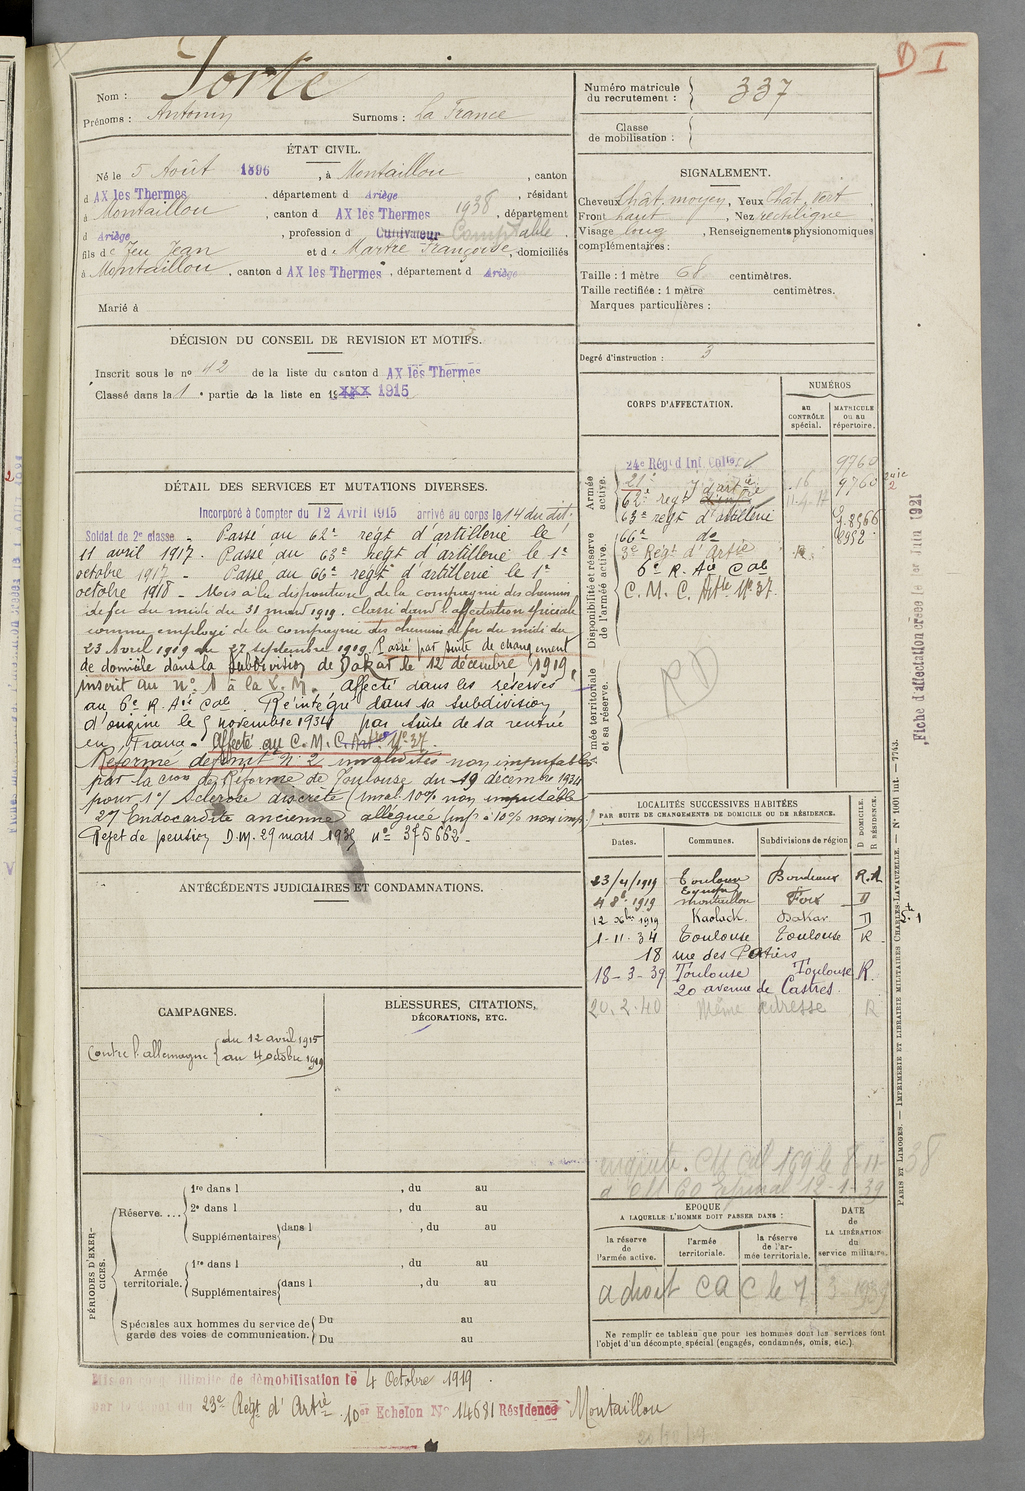 D I
Nom : Forte
Prénoms : Antonin Surnoms : La France
ÉTAT CIVIL.
Né le 5 Août 1896, à Montaillou, canton
d AX les Thermes, département d Ariège, résidant
à Montaillou, canton d AX les Thermes 1938, département
d Ariège, profession d Cultivateur Comptable.
fils de feu Jean et de Martre Françoise, domiciliés
à Montaillou, canton d AX les Thermes, département d Ariège
Marié à
DÉCISION DU CONSEIL DE REVISION ET MOTIFS.
Inscrit sous le no 42 de la liste du canton d AX les Thermes
Classé dans la 1e partie de la liste en 19 XXX 1915
DÉTAIL DES SERVICES ET MUTATIONS DIVERSES.
Incorporé à Compter du 12 Avril 1915 arrivé au corps le 14 du dit.
Soldat de 2e classe - Passé au 62e régt d'artillerie le
11 avril 1917 - Passé au 63e régt d'artillerie le 1er
octobre 1917 - Passé au 66e régt d'artillerie le 1er
octobre 1918 - Mis à la disposition de la compagnie des chemins
de fer du midi du 31 mars 1919. classé dans l'affectation spéciale
comme employé de la compagnie des chemins de fer du midi du
23 Avril 1919 au 27 septembre 1919. Passé par suite de changement
de domicile dans la subdivision de Dakar le 12 décembre 1919,
inscrit au No 1 à la L. M. Affecté dans les réserves
au 6e R. Aie Col. Réintégré dans sa subdivision
d'origine le 5 novembre 1934 par suite de sa rentrée
en France - Affecté au C. M. C. Artie No 37.
Réformé définit No 2 invalidités non imputables
par la cion de Réforme de Toulouse du 19 décembre 1934
pour 1o/ Sclérose discrète (inval. 10% non imputable
2o/ Endocardite ancienne alléguée inf. à 10% non imp.
Rejet de pension D.M. 29 mars 1935 no 375662 -
ANTÉCÉDENTS JUDICIAIRES ET CONDAMNATIONS.
CAMPAGNES.
Contre l'allemagne { du 12 avril 1915
au 4 octobre 1919
BLESSURES, CITATIONS,
DÉCORATIONS, ETC.
PÉRIODES D'EXERCICES.
Réserve.... 1re dans l , du au
2e dans l , du au
Supplémentaires dans l , du au
Armée territoriale. 1re dans l , du au
Supplémentaires dans l , du au
Spéciales aux hommes du service de Du au
garde des voies de communication. Du au
Numéro matricule
du recrutement : 337
Classe
de mobilisation :
SIGNALEMENT.
Cheveux chât. moyen, Yeux chât. vert,
Front haut, Nez rectiligne,
Visage long, Renseignements physionomiques
complémentaires :
Taille : 1 mètre 68 centimètres.
Taille rectifiée : 1 mètre centimètres.
Marques particulières :
Degré d'instruction : 3
CORPS D'AFFECTATION.
NUMÉROS
au
CONTRÔLE
spécial.
MATRICULE
ou au
répertoire.
Armée
active.
24e Régt d'Inf. Colle 9760
21e 16 9760
62e regt d'artie 11-4-17
63e regt d'artillerie
Disponibilité et réserve
de l'armée active.
66e do
3e Régt d'Artie
6e R. Aie Col
C. M. C. Artie No 37.
mée territoriale
et sa réserve.
RD
LOCALITÉS SUCCESSIVES HABITÉES
PAR SUITE DE CHANGEMENTS DE DOMICILE OU DE RÉSIDENCE.
Dates. Communes. Subdivisions de région D DOMICILE. R RÉSIDENCE.
23/4/1919 Toulouse Bordeaux R.
4 8bre 1919 Montaillou Foix D
12 Xbre 1919 Kaolack. Dakar D
1-11-34 Toulouse Toulouse R
18 rue des Potiers
18-3-39 Toulouse Toulouse R.
20 avenue de Castres.
20.2.40 même adresse R
ÉPOQUE
A LAQUELLE L'HOMME DOIT PASSER DANS :
la réserve
de
l'armée active.
l'armée
territoriale.
la réserve
de l'ar-
mée territoriale.
DATE
de
LA LIBÉRATION
du
service militaire.
a droit CAC le 7-3-1939
Ne remplir ce tableau que pour les hommes dont les services font
l'objet d'un décompte spécial (engagés, condamnés, omis, etc.).
Fiche d'affectation créée le 1er Juin 1921
PARIS ET LIMOGES. — IMPRIMERIE ET LIBRAIRIE MILITAIRES CHARLES-LAVAUZELLE. — No 1601 int. — 7743.
Mis en congé illimité de démobilisation le 4 Octobre 1919.
par le dépôt du 23e Régt d'Artie. 10er Echelon No 14681 Résidence Montaillou